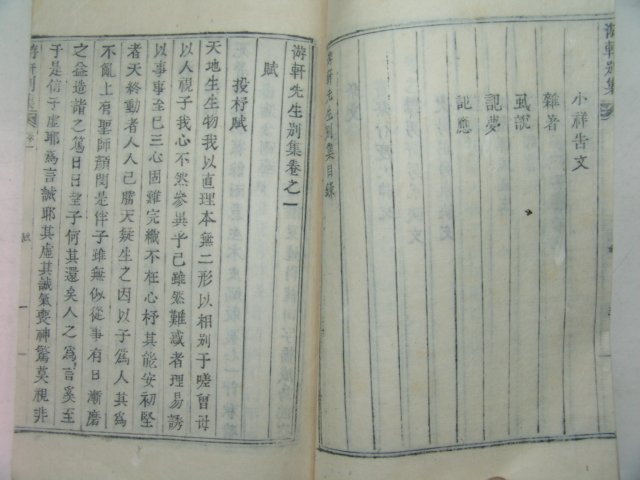 小祥告文
雜著
虱說
記夢
記應
游軒先生別集目錄
游軒先生別集卷之一
賦
投杼賦
天地生生物我以直理本無二形以相別于嗟曾母
以人視子我心不然參異乎己雖然難惑者理易誘
以事事至巳三心固難完織不在心杼其能安初堅
者天終動者人人己旣天疑生之因以子爲人其爲
不亂上有聖師顔閔是伴子雖無似從事有日漸磨
之益造諸之篤日日望子何其還矣人之爲言奚至
于是信乎虛耶爲言誠耶其虛其誠氣喪神驚莫視非